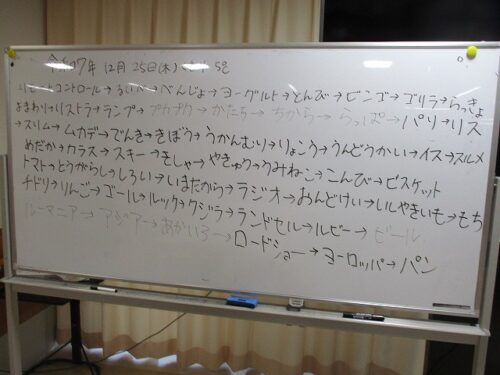 令和7年 12月 25日(木)
リモートコントロール→るいか→べんじょ→ヨーグルト→とんび→ビンゴ→ゴリラ→らっきょ
よまわり→リストラ→ランプ→プカプカ→かたち→ちから→らっぱ→パリ→リス
→スリム→ムカデ→でんき→きぼう→うかんむり→りょこう→うんどうかい→イス→スルメ
めだか→カラス→スキー→きしゃ→やきゅう→うみねこ→こんぶ→ビスケット
トマト→とうがらし→しろい→いまだから→ラジオ→おんどけい→いしやきいも→もち
チドリ→りんご→ゴール→ルック→クジラ→ランドセル→ルビー→ビール
ルーマニア→アジア→あかいろ→ロードショー→ヨーロッパ→パン